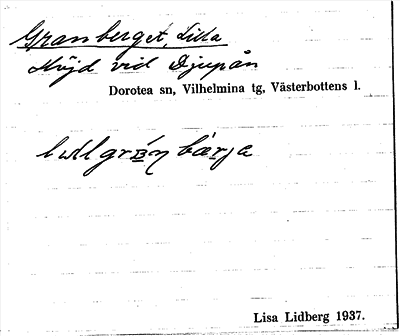 Granberget, Lilla
Höjd vid Djupån
Dorotea sn, Vilhelmina tg, Västerbottens l.
Lisa Lidberg 1937.